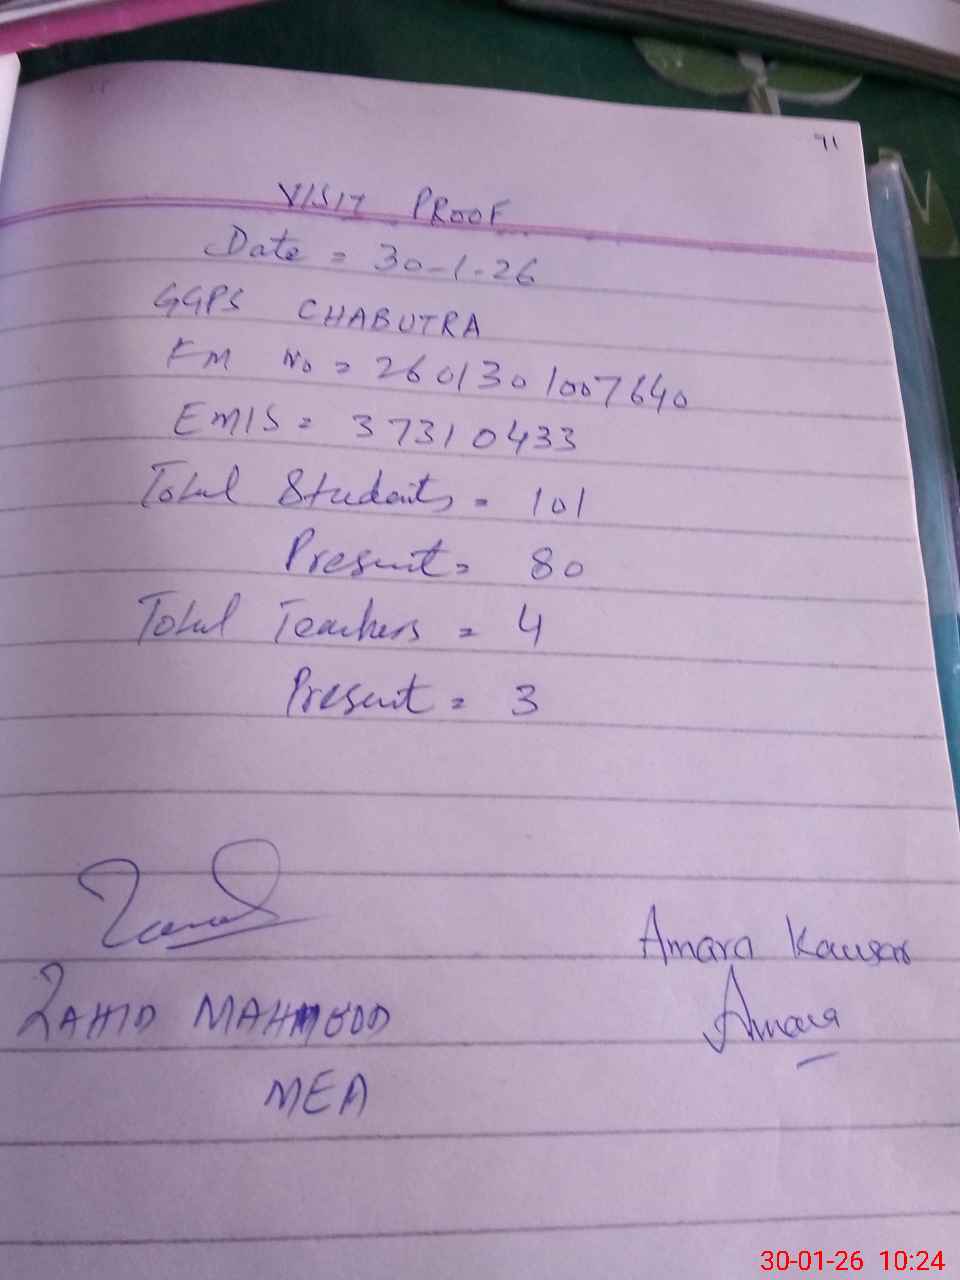 71
VISIT PROOF
Date = 30-1-26
GGPS CHABUTRA
FM No = 2601301007640
EMIS = 37310433
Total Students = 101
Present = 80
Total Teachers = 4
Present = 3
Amara Kausar
ZAHID MAHMOOD
Amara
MEA
30-01-26 10:24